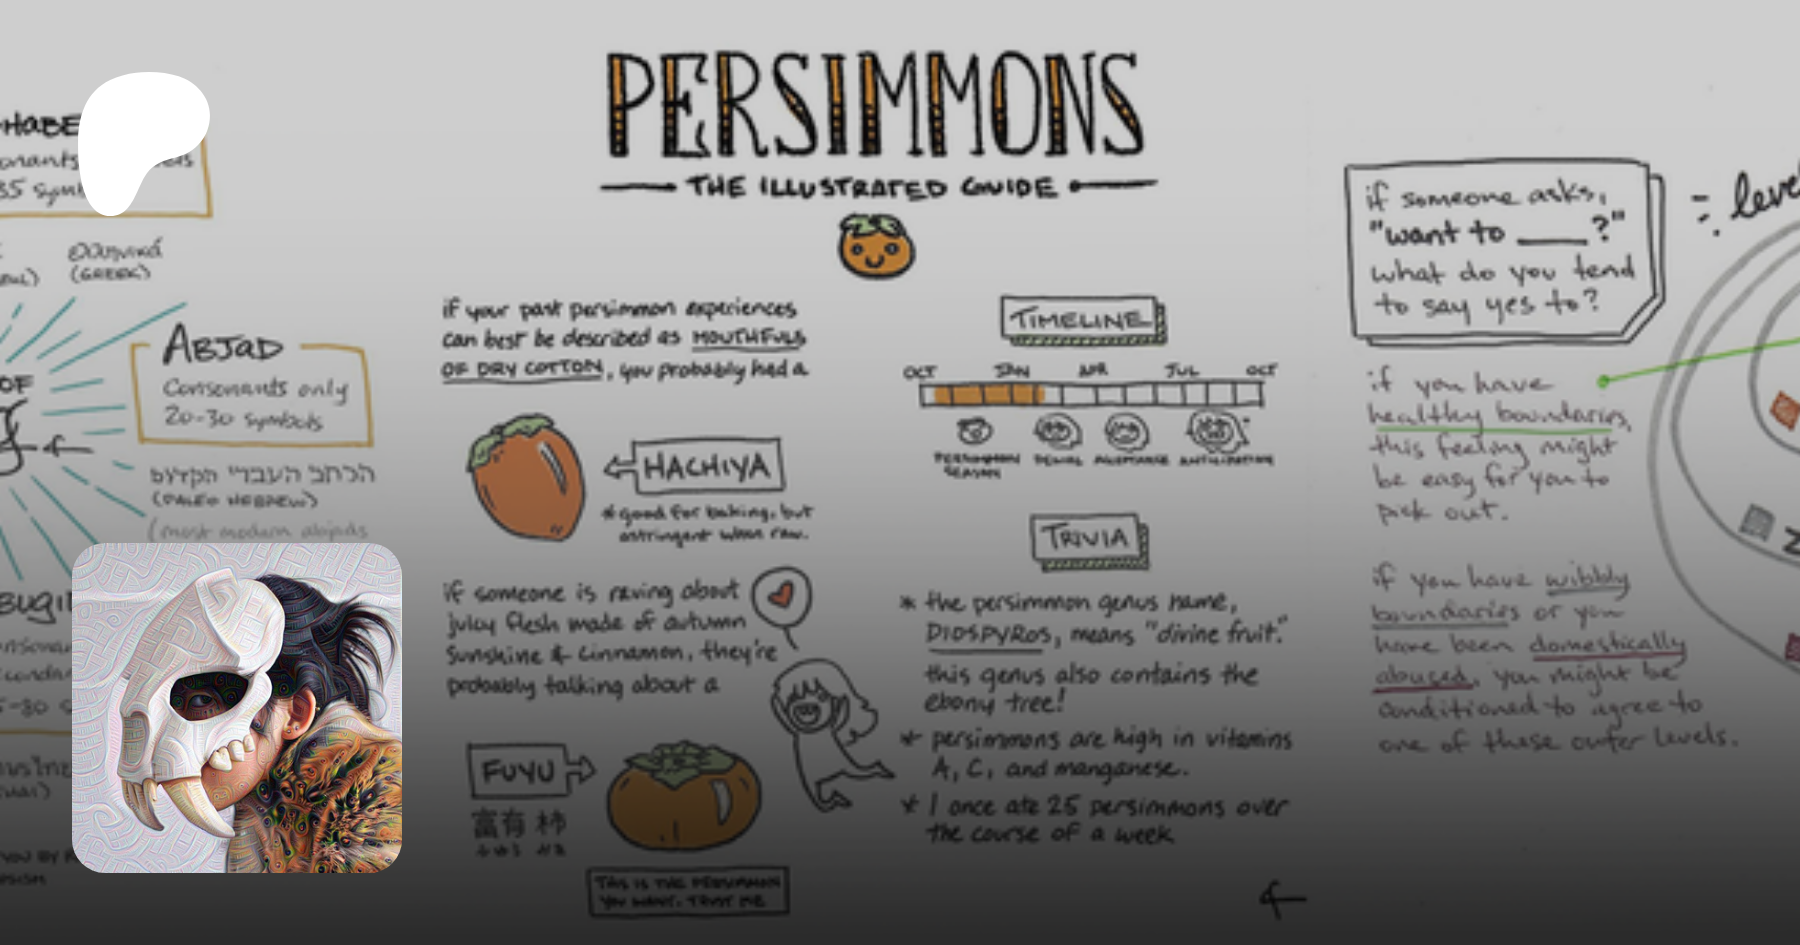 35
ελληνικά
(GREEK)
ABJAD
Consonants only
20-30 symbols
OF
הכתב העברי הקדום
(PALEO HEBREW)
(most modern abjads
PERSIMMONS
THE ILLUSTRATED GUIDE
if your past persimmon experiences
can best be described as MOUTHFULS
OF DRY COTTON, you probably had a
HACHIYA
*good for baking, but
astringent when raw.
if someone is raving about
juicy flesh made of autumn
sunshine & cinnamon, they're
probably talking about a
FUYU
富有 柿
THIS IS THE PERSIMMON
YOU WANT. TRUST ME
TIMELINE
OCT JAN APR JUL OCT
PERSIMMON
SEASON
DENIAL ACCEPTANCE ANTICIPATION
TRIVIA
* the persimmon genus name,
DIOSPYROS, means "divine fruit."
this genus also contains the
ebony tree!
* persimmons are high in vitamins
A, C, and manganese.
* I once ate 25 persimmons over
the course of a week
if someone asks,
"want to ____?"
what do you tend
to say yes to?
if you have
healthy boundaries,
this feeling might
be easy for you to
pick out.
if you have wibbly
boundaries or you
have been domestically
abused, you might be
conditioned to agree to
one of these outer levels.